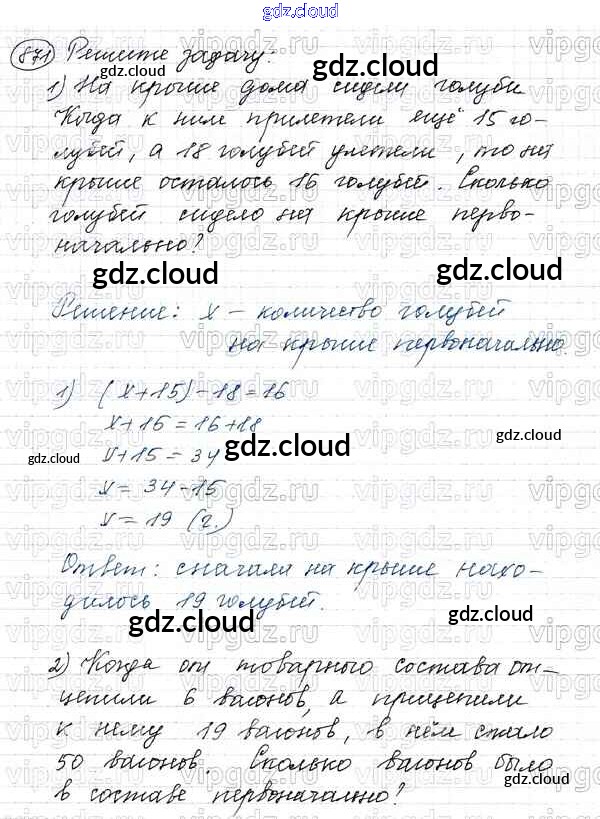 gdz.cloud
871 Решите задачу:
1) На крыше дома сидели голуби
Когда к ним прилетели ещё 15 го-
лубей, а 18 голубей улетели, то на
крыше осталось 16 голубей. Сколько
голубей сидело на крыше перво-
начально?
Решение: x – количество голубей
на крыше первоначально.
1) (x+15)-18=16
x+15=16+18
x+15=34
x=34-15
x=19 (г.)
Ответ: сначала на крыше нахо-
дилось 19 голубей.
2) Когда от товарного состава от-
цепили 6 вагонов, а прицепили
к нему 19 вагонов, в нём стало
50 вагонов. Сколько вагонов было
в составе первоначально?